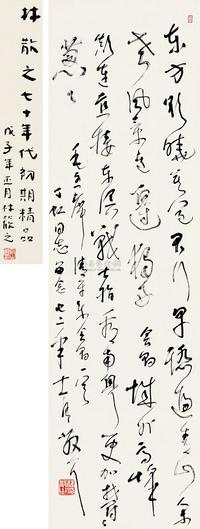 东方欲曉莫道君行早踏遍青山人
未老风景这边独好 会昌城外高峰
颠连直接东溟战士指看南粤更加郁郁
葱葱
毛主席清平乐会昌一首
同志留念 七二年十一月 散耳
林散之七十年代初期精品
戊子年五月林筱之